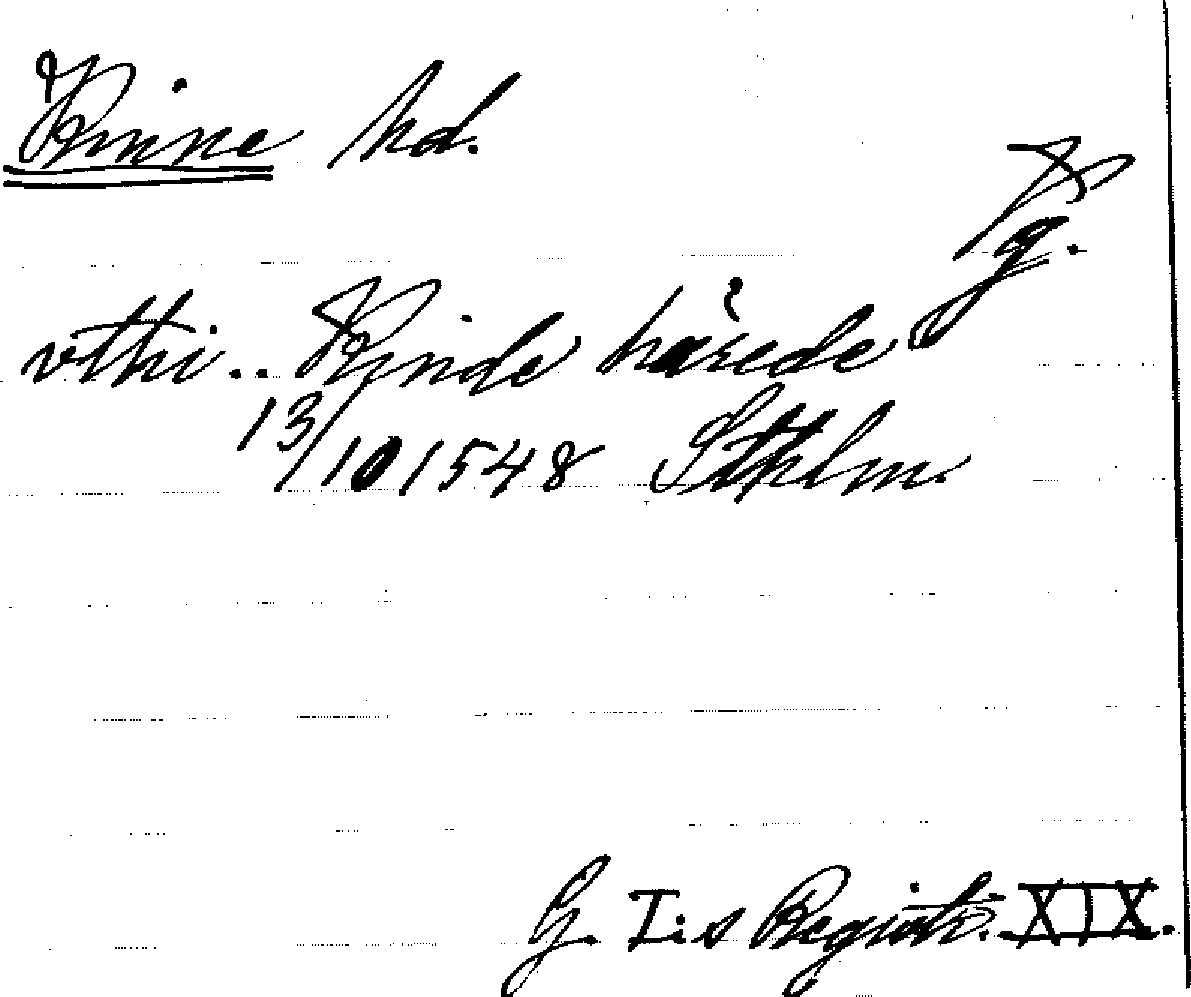 Kinne hd.
vthi.. Kinde härede
13/10 1548 Sthlm.
G. I:s Registr. XIX.